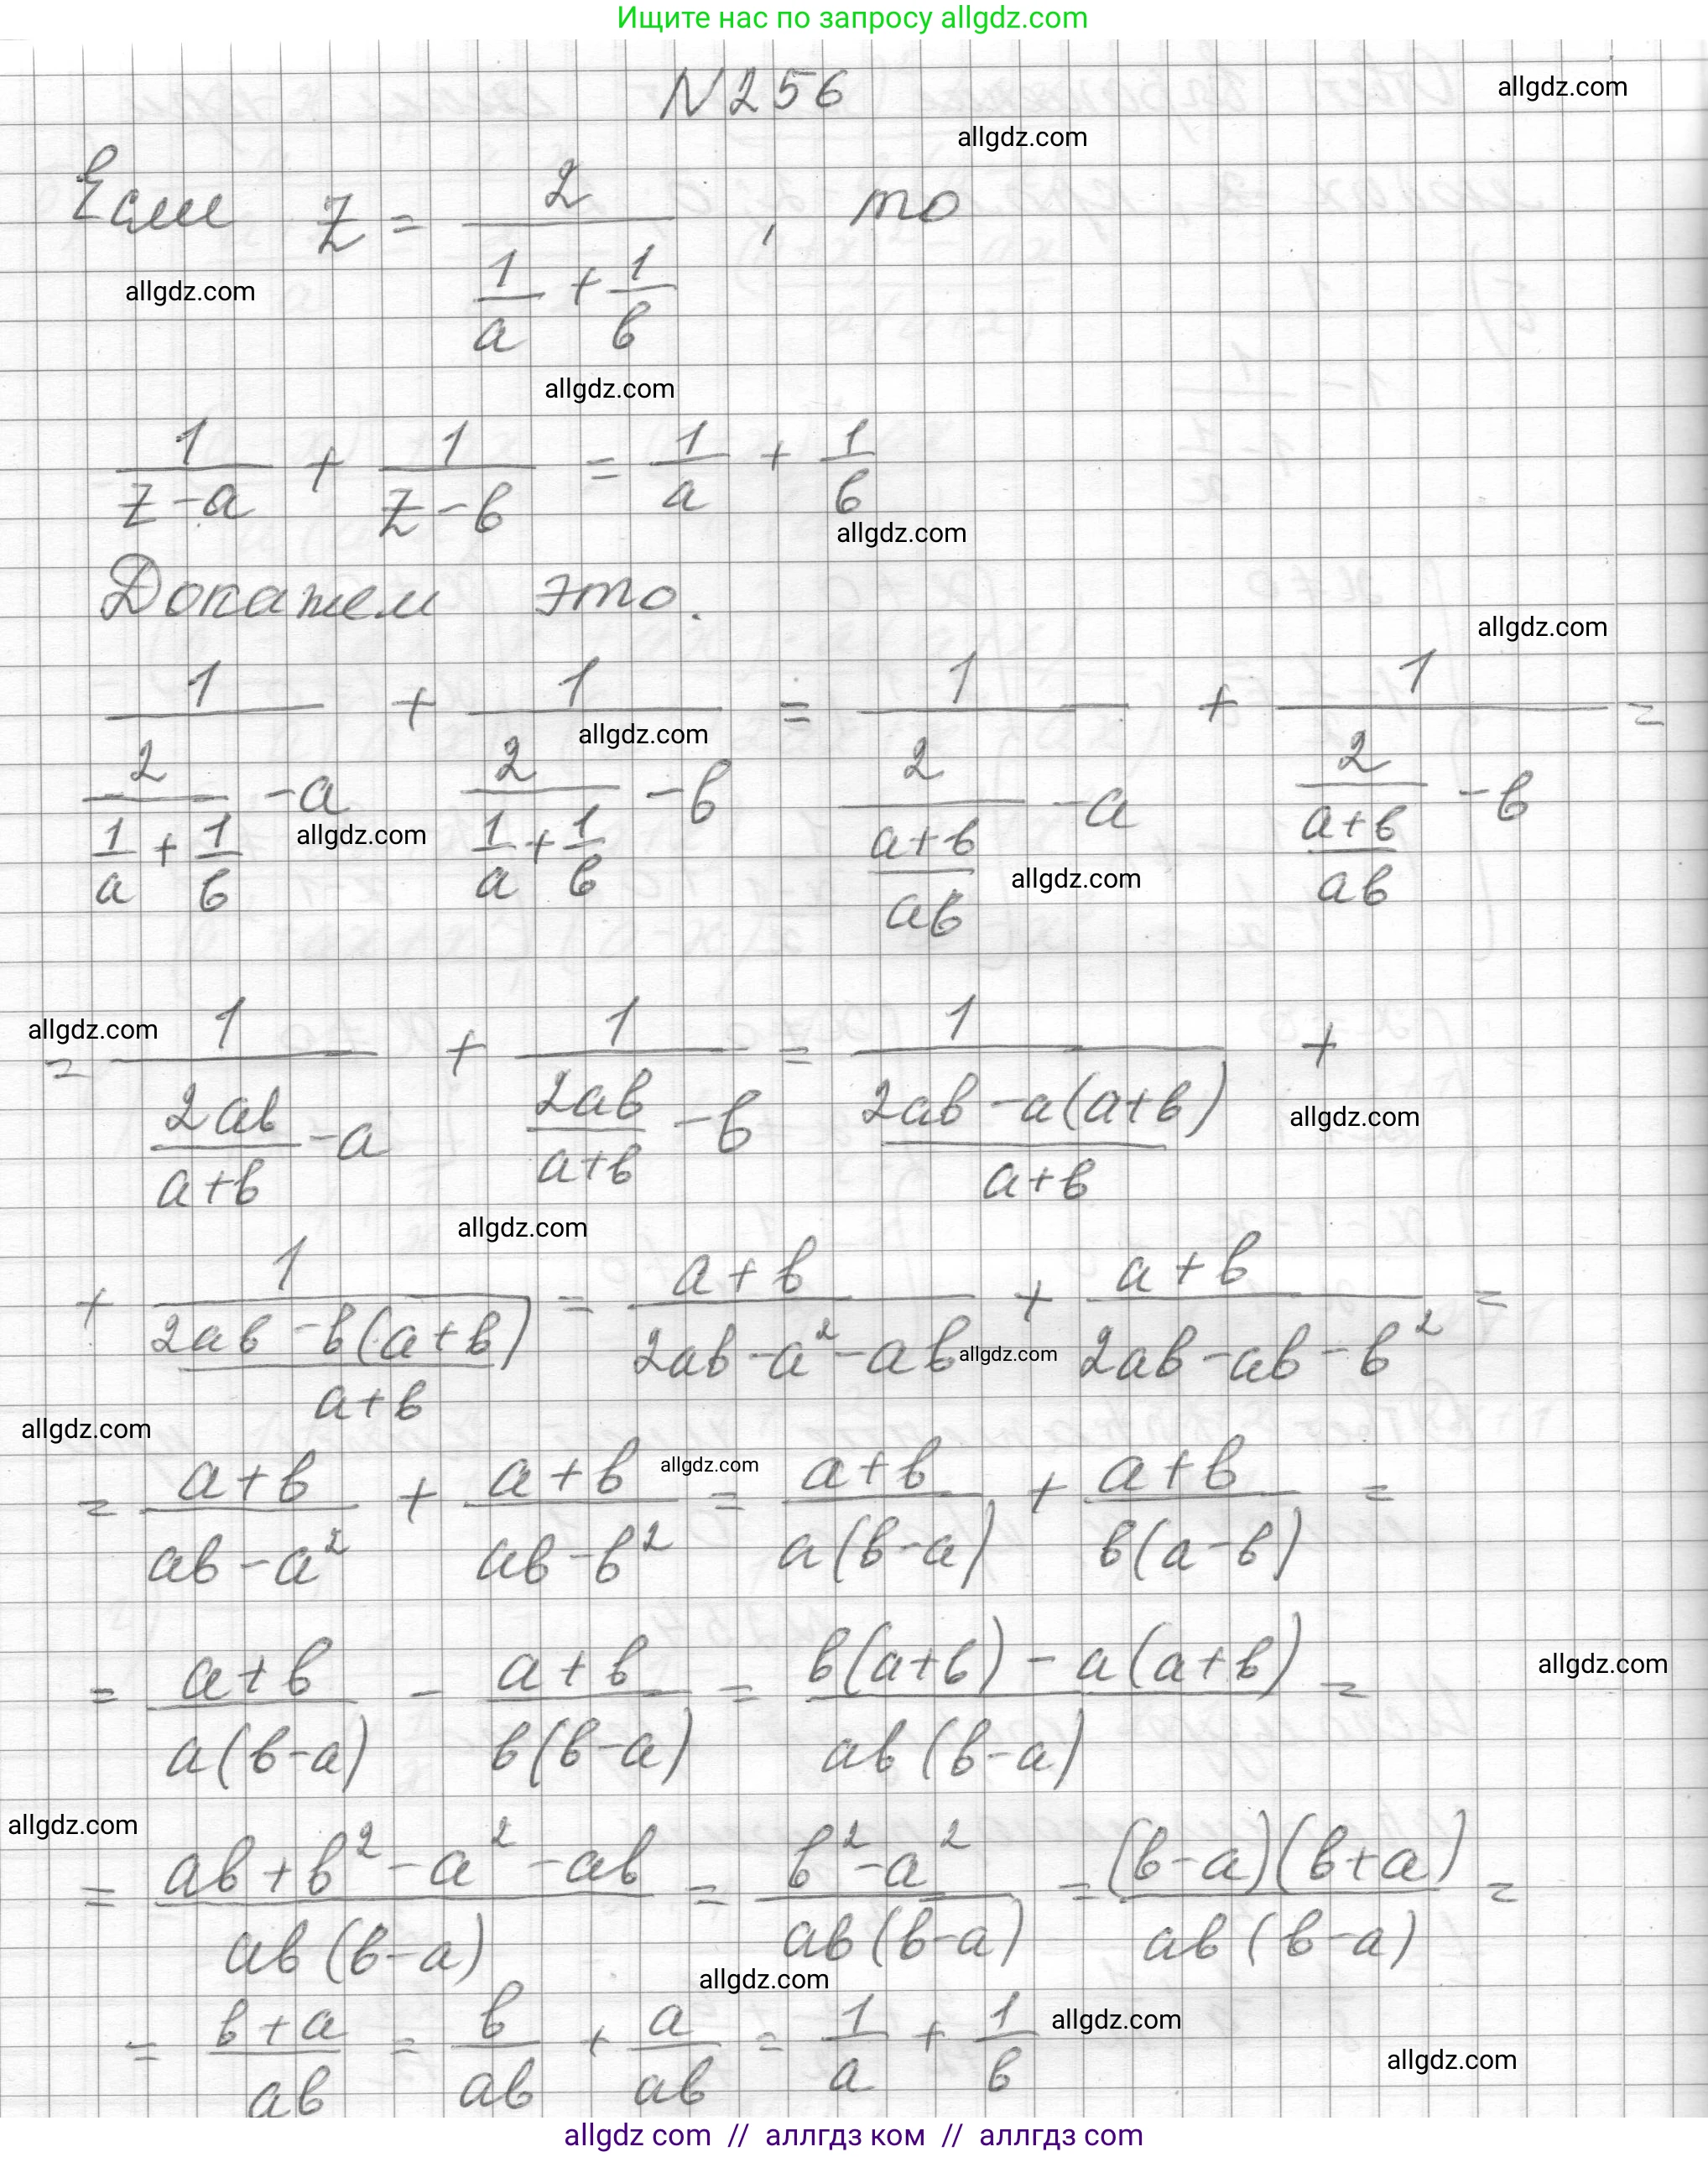 Ищите нас по запросу allgdz.com
N256
allgdz.com
allgdz.com
Если z = 2/(1/a + 1/в), то
allgdz.com
allgdz.com
1/(z-a) + 1/(z-в) = 1/a + 1/в
allgdz.com
Докажем это.
allgdz.com
1/(2/(1/a + 1/в) - a) + 1/(2/(1/a + 1/в) - в) = 1/(2/((a+в)/aв) - a) + 1/(2/((a+в)/aв) - в) =
allgdz.com
allgdz.com
allgdz.com
allgdz.com
= 1/(2aв/(a+в) - a) + 1/(2aв/(a+в) - в) = 1/((2aв - a(a+в))/(a+в)) +
allgdz.com
allgdz.com
+ 1/((2aв - в(a+в))/(a+в)) = (a+в)/(2aв - a² - aв) + (a+в)/(2aв - aв - в²) =
allgdz.com
allgdz.com
= (a+в)/(aв - a²) + (a+в)/(aв - в²) = (a+в)/(a(в-a)) + (a+в)/(в(a-в)) =
allgdz.com
= (a+в)/(a(в-a)) - (a+в)/(в(в-a)) = (в(a+в) - a(a+в))/(aв(в-a)) =
allgdz.com
allgdz.com
= (aв + в² - a² - aв)/(aв(в-a)) = (в² - a²)/(aв(в-a)) = ((в-a)(в+a))/(aв(в-a)) =
allgdz.com
= (в+a)/aв = в/aв + a/aв = 1/a + 1/в
allgdz.com
allgdz.com
allgdz com // аллгдз ком // аллгдз com